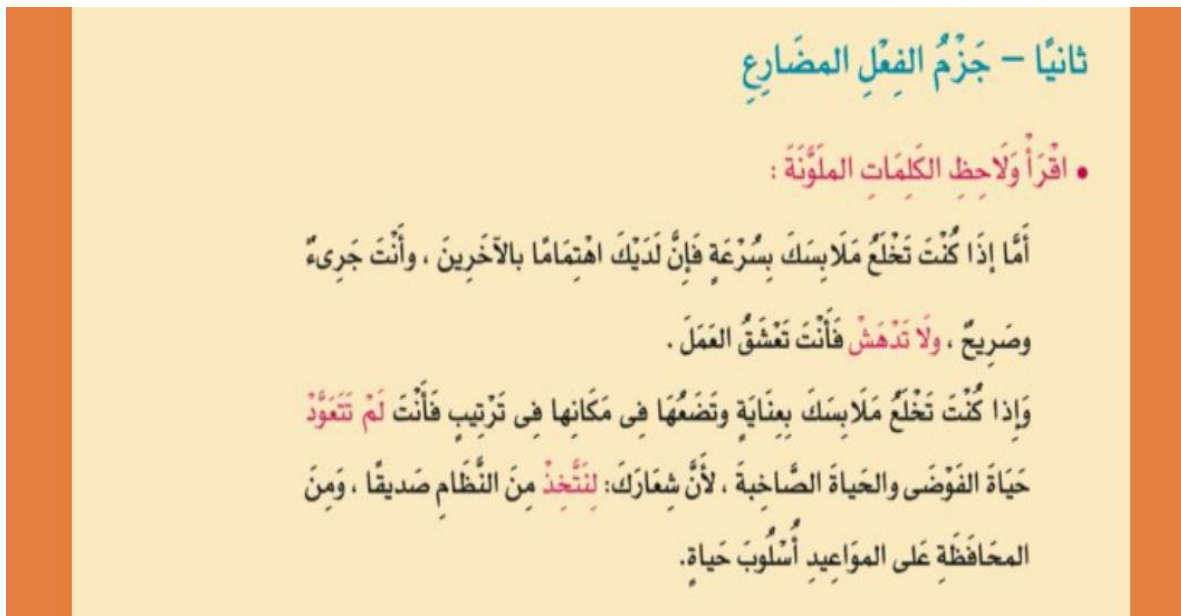 ثانيًا – جَزْمُ الفِعْلِ المضَارِعِ
• اقْرَأْ وَلَاحِظِ الكَلِمَاتِ الملَوَّنَةَ :
أَمَّا إذَا كُنْتَ تَخْلَعُ مَلَابِسَكَ بِسُرْعَةٍ فَإنَّ لَدَيْكَ اهْتِمَامًا بالآخَرِينَ ، وأَنْتَ جَرِىءٌ
وصَرِيحٌ ، ولَا تَدْهَشْ فَأَنْتَ تَعْشَقُ العَمَلَ .
وَإذا كُنْتَ تَخْلَعُ مَلَابِسَكَ بِعِنَايَةٍ وتَضَعُهَا فِى مَكَانِها فِى تَرْتِيبٍ فَأَنْتَ لَمْ تَتَعَوَّدْ
حَيَاةَ الفَوْضَى والحَياةَ الصَّاخِبةَ ، لأَنَّ شِعَارَكَ: لِنَتَّخِذْ مِنَ النَّظَامِ صَديقًا ، وَمِنَ
المحَافَظَةِ عَلى الموَاعِيدِ أُسْلُوبَ حَياةٍ.